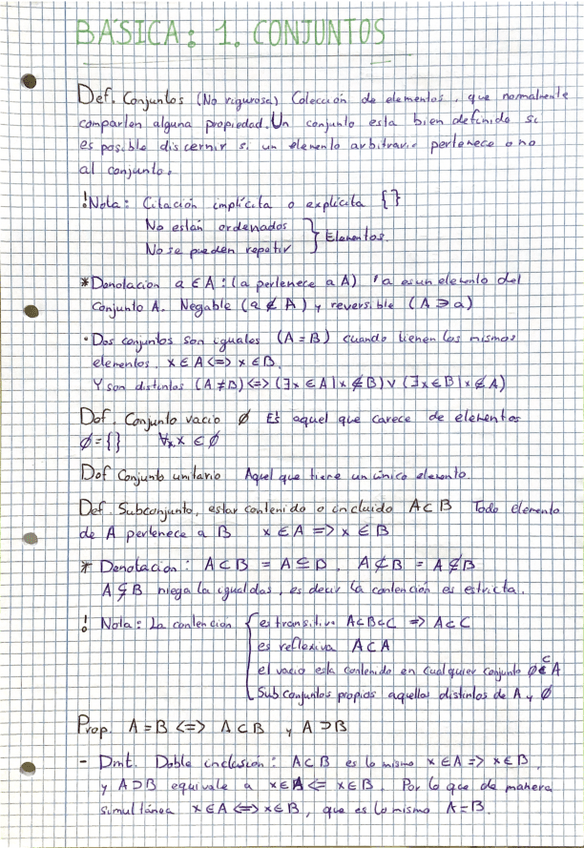 BÁSICA: 1. CONJUNTOS
Def. Conjuntos (No rigurosa) Colección de elementos, que normalmente
comparten alguna propiedad. Un conjunto esta bien definido si
es posible discernir si un elemento arbitrario pertenece o no
al conjunto.
! Nota: Citación implícita o explícita {}
No están ordenados
No se pueden repetir } Elementos.
* Denotación a ∈ A: (a pertenece a A) 'a es un elemento del
conjunto A. Negable (a ∉ A) y reversible (A ∋ a)
· Dos conjuntos son iguales (A = B) cuando tienen los mismos
elementos. x ∈ A <=> x ∈ B.
Y son distintos (A ≠ B) <=> (∃x ∈ A | x ∉ B) ∨ (∃x ∈ B | x ∉ A)
Def. Conjunto vacio ∅ Es aquel que carece de elementos
∅ = {} x ∈ ∅
Def Conjunto unitario Aquel que tiene un único elemento.
Def. Subconjunto, estar contenido o incluido A ⊂ B Todo elemento
de A pertenece a B x ∈ A => x ∈ B
* Denotación: A ⊂ B = A ⊆ B. A ⊄ B = A ⊈ B
A ⊊ B niega la igualdad, es decir la contención es estricta.
! Nota: La contención { es transitiva A⊂B⊂C => A⊂C
es reflexiva A⊂A
el vacío esta contenido en cualquier conjunto ∅ ⊂ A
Subconjuntos propios aquellos distintos de A y ∅
Prop. A = B <=> A ⊂ B y A ⊃ B
- Dmt. Doble inclusion: A⊂B es lo mismo x ∈ A => x ∈ B
y A⊃B equivale a x∈A <= x∈B. Por lo que de manera
simultánea x∈A <=> x∈B, que es lo mismo A=B.